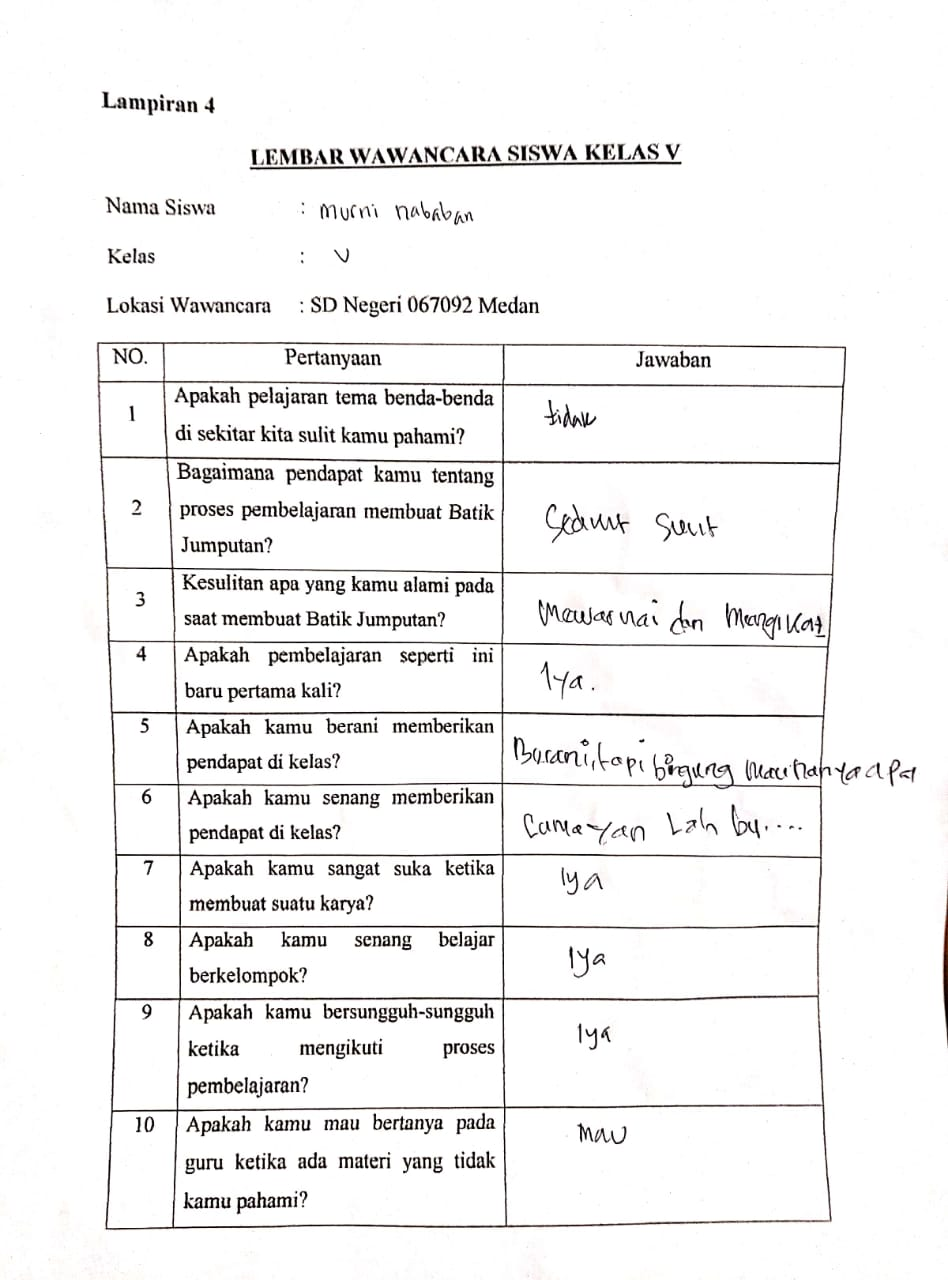 Lampiran 4
LEMBAR WAWANCARA SISWA KELAS V
Nama Siswa : Murni nababan
Kelas : V
Lokasi Wawancara : SD Negeri 067092 Medan
NO. Pertanyaan Jawaban
1 Apakah pelajaran tema benda-benda
di sekitar kita sulit kamu pahami?
tidak
2 Bagaimana pendapat kamu tentang
proses pembelajaran membuat Batik
Jumputan?
Sedikit Sulit
3 Kesulitan apa yang kamu alami pada
saat membuat Batik Jumputan?
Mewarnai dan Mengikat
4 Apakah pembelajaran seperti ini
baru pertama kali?
Iya.
5 Apakah kamu berani memberikan
pendapat di kelas?
Berani, tapi bingung mau nanya apa
6 Apakah kamu senang memberikan
pendapat di kelas?
Lumayan Lah bu....
7 Apakah kamu sangat suka ketika
membuat suatu karya?
Iya
8 Apakah kamu senang belajar
berkelompok?
Iya
9 Apakah kamu bersungguh-sungguh
ketika mengikuti proses
pembelajaran?
Iya
10 Apakah kamu mau bertanya pada
guru ketika ada materi yang tidak
kamu pahami?
Mau